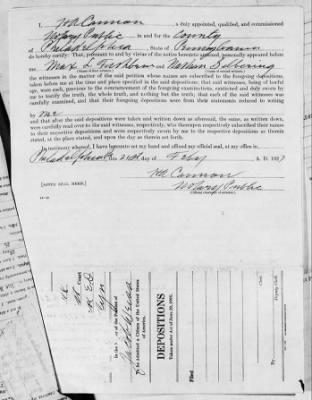 I, Ida Cannon, a duly appointed, qualified, and commissioned
Notary Public in and for the County
of Philadelphia, State of Pennsylvania
do hereby certify: That, pursuant to and by virtue of the notice hereunto annexed, personally appeared before
me Max L. and Nathan
the witnesses in the matter of the said petition whose names are subscribed to the foregoing depositions,
taken before me at the time and place specified in the said depositions; that said witnesses, being of lawful
age, were each, previous to the commencement of the foregoing examinations, cautioned and duly sworn by
me to testify the truth, the whole truth, and nothing but the truth; that each of the said witnesses was
carefully examined, and that their foregoing depositions were from their statements reduced to writing
by me
and that after the said depositions were taken and written down as aforesaid, the same, as written down,
were carefully read over to the said witnesses, respectively, who thereupon respectively subscribed their names
to their respective depositions and were respectively sworn by me to the respective depositions as therein
stated, at the place stated, and upon the day as therein set forth.
In testimony whereof, I have hereunto set my hand and affixed my official seal, at my office in
Philadelphia this 21st day of Feby, A. D. 1927
Ida Cannon
Notary Public
[AFFIX SEAL HERE.]
(Official character of officer.)
Court
In the Matter of the Petition of
To be Admitted a Citizen of the United States
of America.
DEPOSITIONS
Taken under Act of June 29, 1906.
Filed
Clerk.
By
Deputy Clerk.